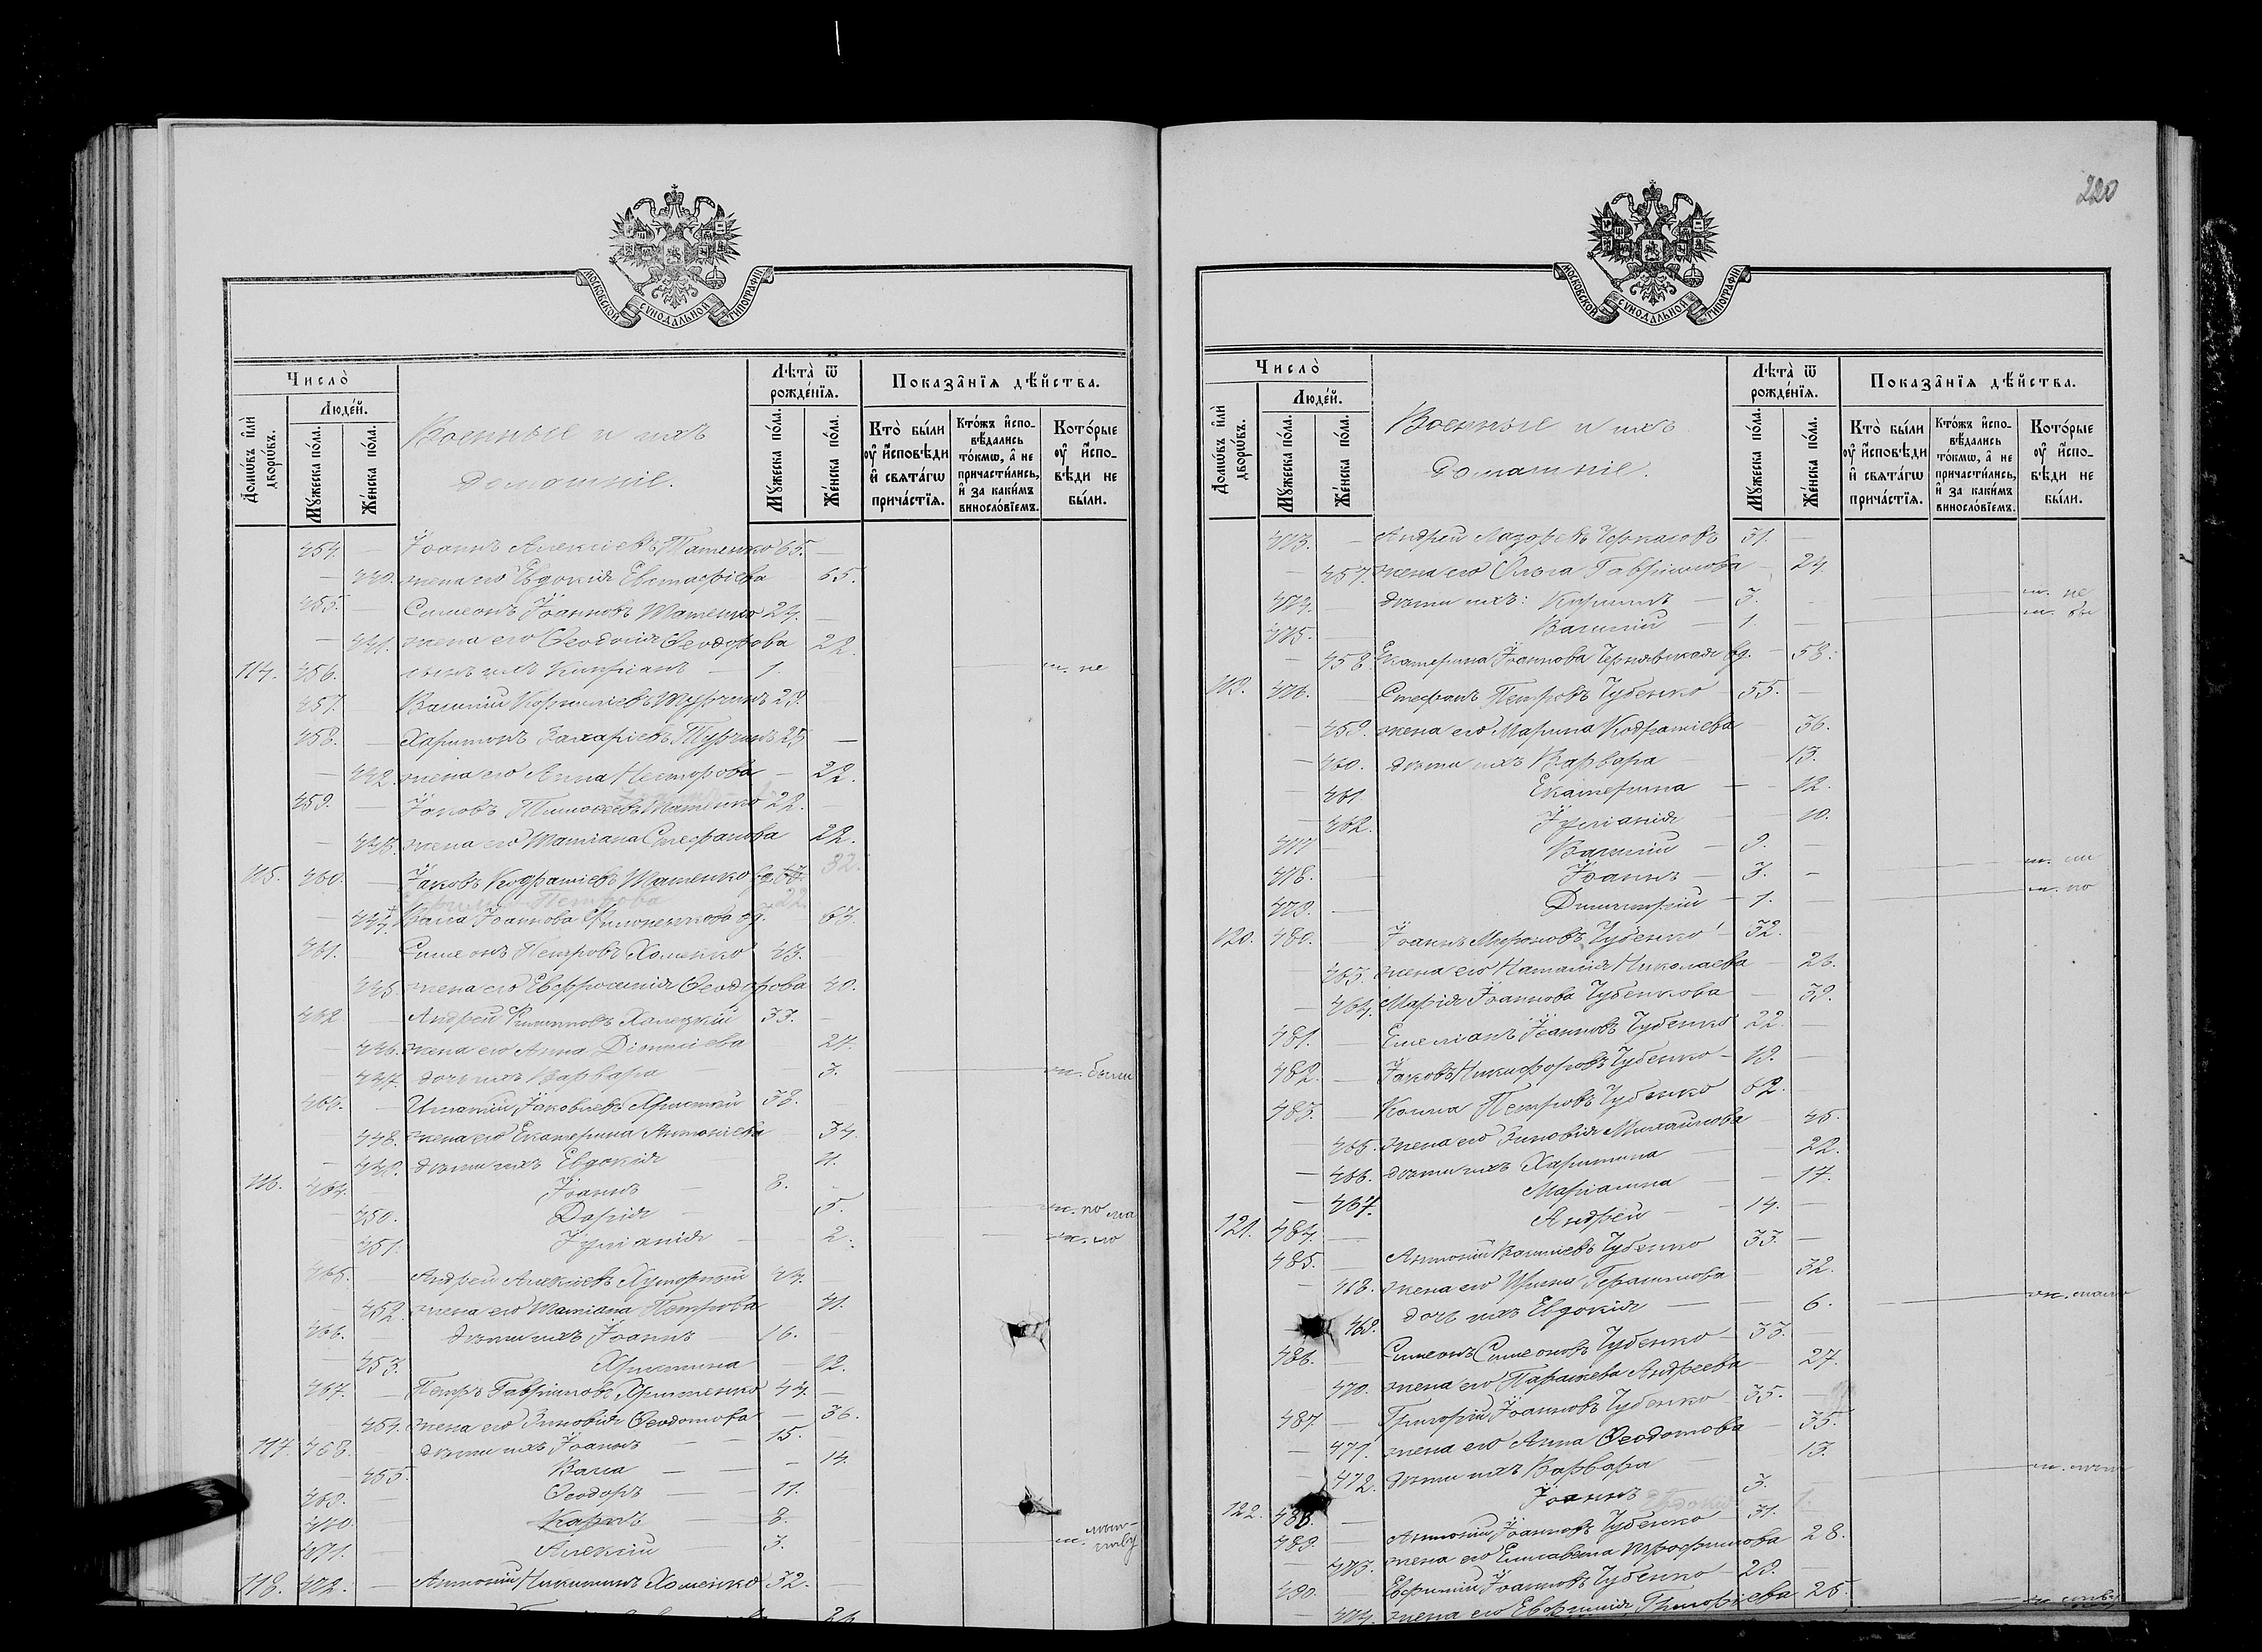 220
МОСКОВСКОЙ СѴНОДАЛЬНОЙ ТИПОГРАФІИ
Число̀
Домѡ́въ и҆лѝ дворѡ́въ.
Люде́й.
Мꙋ́жеска по́ла.
Же́нска по́ла.
Военные и ихъ
домашніе.
Лѣта̀ ѿ рожде́нїѧ.
Мꙋ́жеска по́ла.
Же́нска по́ла.
Показа̑нїѧ дѣ́йства.
Кто̀ бы́ли оу҆ и҆сповѣ́ди и҆ свѧта́гѡ прича́стїѧ.
Кто́жъ и҆сповѣ́дались то́кмѡ, а҆ не причасти́лись, и҆ за каки́мъ виносло́вїемъ.
Кото́рые оу҆ и҆сповѣ́ди не бы́ли.
454. — Іоаннъ Алексіевъ Татенко 65. —
— 440. жена его Евдокія Евстафіева 65.
455. — Симеонъ Іоанновъ Татенко 24. —
— 441. жена его Ѳеодосія Ѳеодорова 22.
114. 456. сынъ ихъ Кипріанъ — 1. м. не
457. Василій Корниліевъ 29.
458. — Харитонъ Захаріевъ 25 —
— 442. жена его Анна Несторова — 22.
459. — Іаковъ Тимоѳеевъ Татенко 22. —
— 443. жена его Татіана Стефанова 22.
115. 460. — Іаковъ Кодратіевъ Татенко 32.
Петрова 22
— 444. Васса Іоаннова вд. 63.
461. Симеонъ Петровъ Хоменко 43.
445. жена его Евфросинія Ѳеодорова 40.
462 — Андрей Халецкій 33. —
— 446. жена его Анна Діонисіева 24.
— 447. дочь ихъ Варвара — 3. м. были
463. — Игнатій Іаковлевъ 38. —
448. жена его Екатерина Антоніева — 34.
— 449. дѣти ихъ Евдокія 11.
116. 464. — Іоаннъ — 8. —
— 450. Дарія — 5. м. по
— 451. Іуліанія — 2. м.
465. — Андрей Алексіевъ Хуторный 44. —
— 452. жена его Татіана Петрова — 41.
466. — дѣти ихъ Іоаннъ — 16. —
— 453. Христина — 12.
467. — Петръ Гавріиловъ 44. —
454. жена его Зиновія Ѳеодотова — 36.
117. 468. — дѣти ихъ Іоаннъ — 15. —
— 455. Васса — — 14.
469. — Ѳеодоръ — 11.
470. — Карпъ — 8.
471. — Алексій 3. м.
118. 472. — Антоній Никитинъ Хоменко 32. —
Число̀
Домѡ́въ и҆лѝ дворѡ́въ.
Люде́й.
Мꙋ́жеска по́ла.
Же́нска по́ла.
Военные и ихъ
домашніе.
Лѣта̀ ѿ рожде́нїѧ.
Мꙋ́жеска по́ла.
Же́нска по́ла.
Показа̑нїѧ дѣ́йства.
Кто̀ бы́ли оу҆ и҆сповѣ́ди и҆ свѧта́гѡ прича́стїѧ.
Кто́жъ и҆сповѣ́дались то́кмѡ, а҆ не причасти́лись, и҆ за каки́мъ виносло́вїемъ.
Кото́рые оу҆ и҆сповѣ́ди не бы́ли.
473. — Андрей Лазоревъ Черкасовъ 31. —
— 457. жена его Ольга Гавріилова — 24.
474. дѣти ихъ: Кириллъ — 3. м. не
475. Василій — 1. м. бы
— 458. Екатерина Іоаннова Чернявская вд. — 58.
119. 476. Стефанъ Петровъ Чубенко — 55. —
— 459. жена его Марина Кодратіева 36.
— 460. дѣти ихъ Варвара — 13.
— 461. Екатерина — — 12.
462. Іуліанія — 10.
477 — Василій — 9. —
478. — Іоаннъ — 3. — м.
479. — Димитрій — 1. м. по
120. 480. Іоаннъ Мироновъ Чубенко — 32. —
463. жена его Наталія Николаева — 26.
— 464. Марія Іоаннова Чубенкова — 39.
481. — Емеліанъ Іоанновъ Чубенко 22. —
482. — Іаковъ Никифоровъ Чубенко — 19. —
483. — Косма Петровъ Чубенко 62. —
465. жена его Зиновія Михаилова — 45.
— 466. дѣти ихъ Харитина — 22.
— 467. Маріанна — — 17.
121. 484. — Андрей — 14. —
485. — Антоній Васильевъ Чубенко 33. —
— 468. жена его Ирина Герасимова — 32.
469. дочь ихъ Евдокія — — 6. м.
486. Симеонъ Симеоновъ Чубенко — 33. —
470. жена его Параскева Андреева — 27.
487 Григорій Іоанновъ Чубенко — 35. —
— 471. жена его Анна Ѳеодотова 35.
— 472. дѣти ихъ Варвара — 13.
122. 488. — Іоаннъ 3. м.
489. — Антоній Іоанновъ Чубенко — 31. —
— 473. жена его Елисавета Трофимова 28.
490. — Евфимій Іоанновъ Чубенко — 29. —
— 474. жена его Евфимія 25.